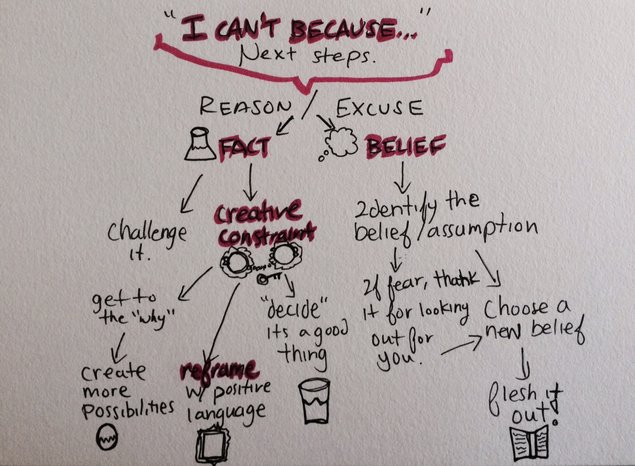 "I CAN'T BECAUSE..."
Next steps.
REASON
EXCUSE
FACT
BELIEF
challenge
it.
creative
constraint
get to
the "why"
create
more
possibilities
reframe
w/ positive
language
"decide"
its a good
thing
Identify the
belief/assumption
If fear, thank
it for looking
out for
you.
Choose a
new belief
flesh it
out!